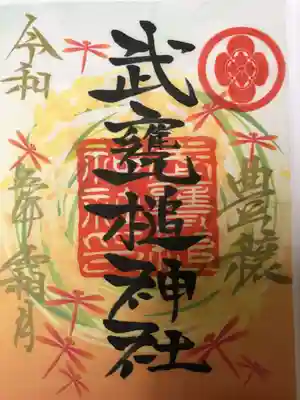 豊穣
武甕槌神社
令和
霜月